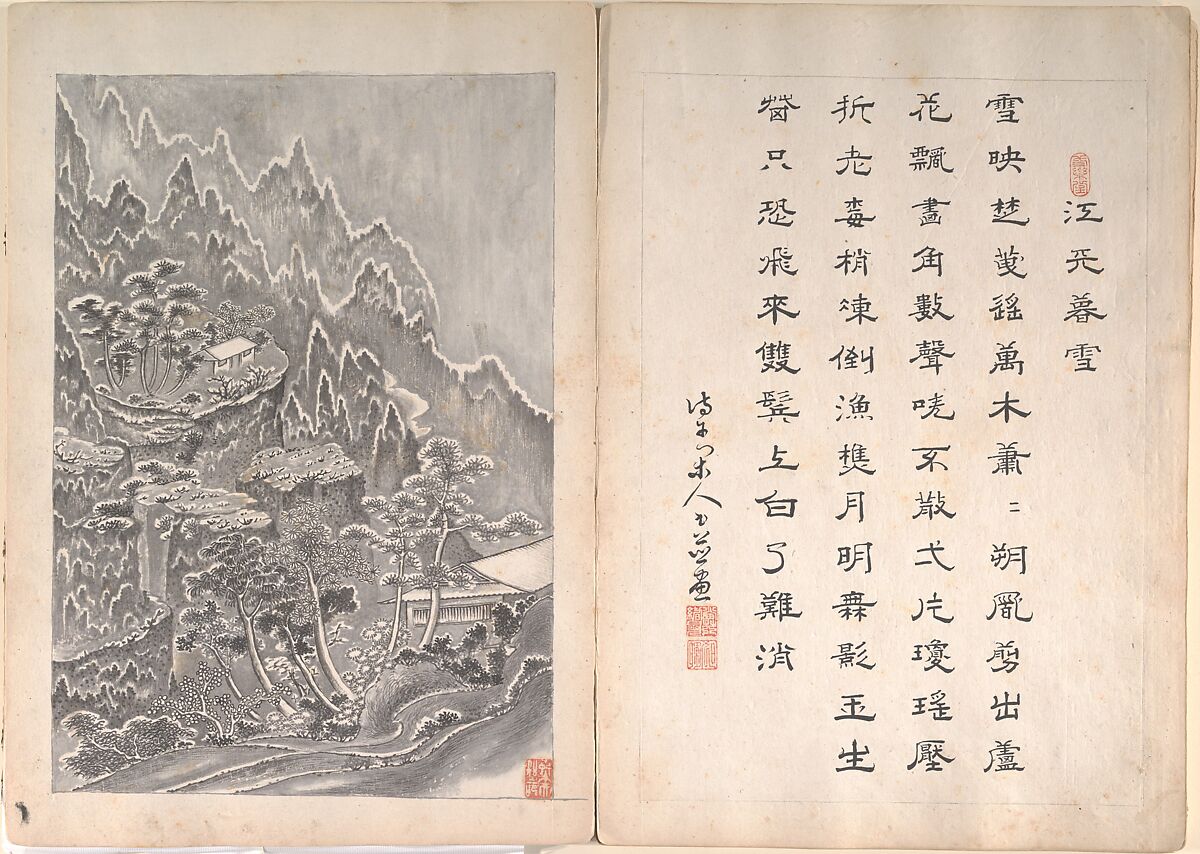 江天暮雪
雪映楚遥萬木蕭〻朔風剪出蘆
花飄畫角數聲嘵不散弌片瓊瑤壓
折老梅梢凍倒漁樵月明無影玉生
只恐飛來雙鬢上白了難消
人書並畫